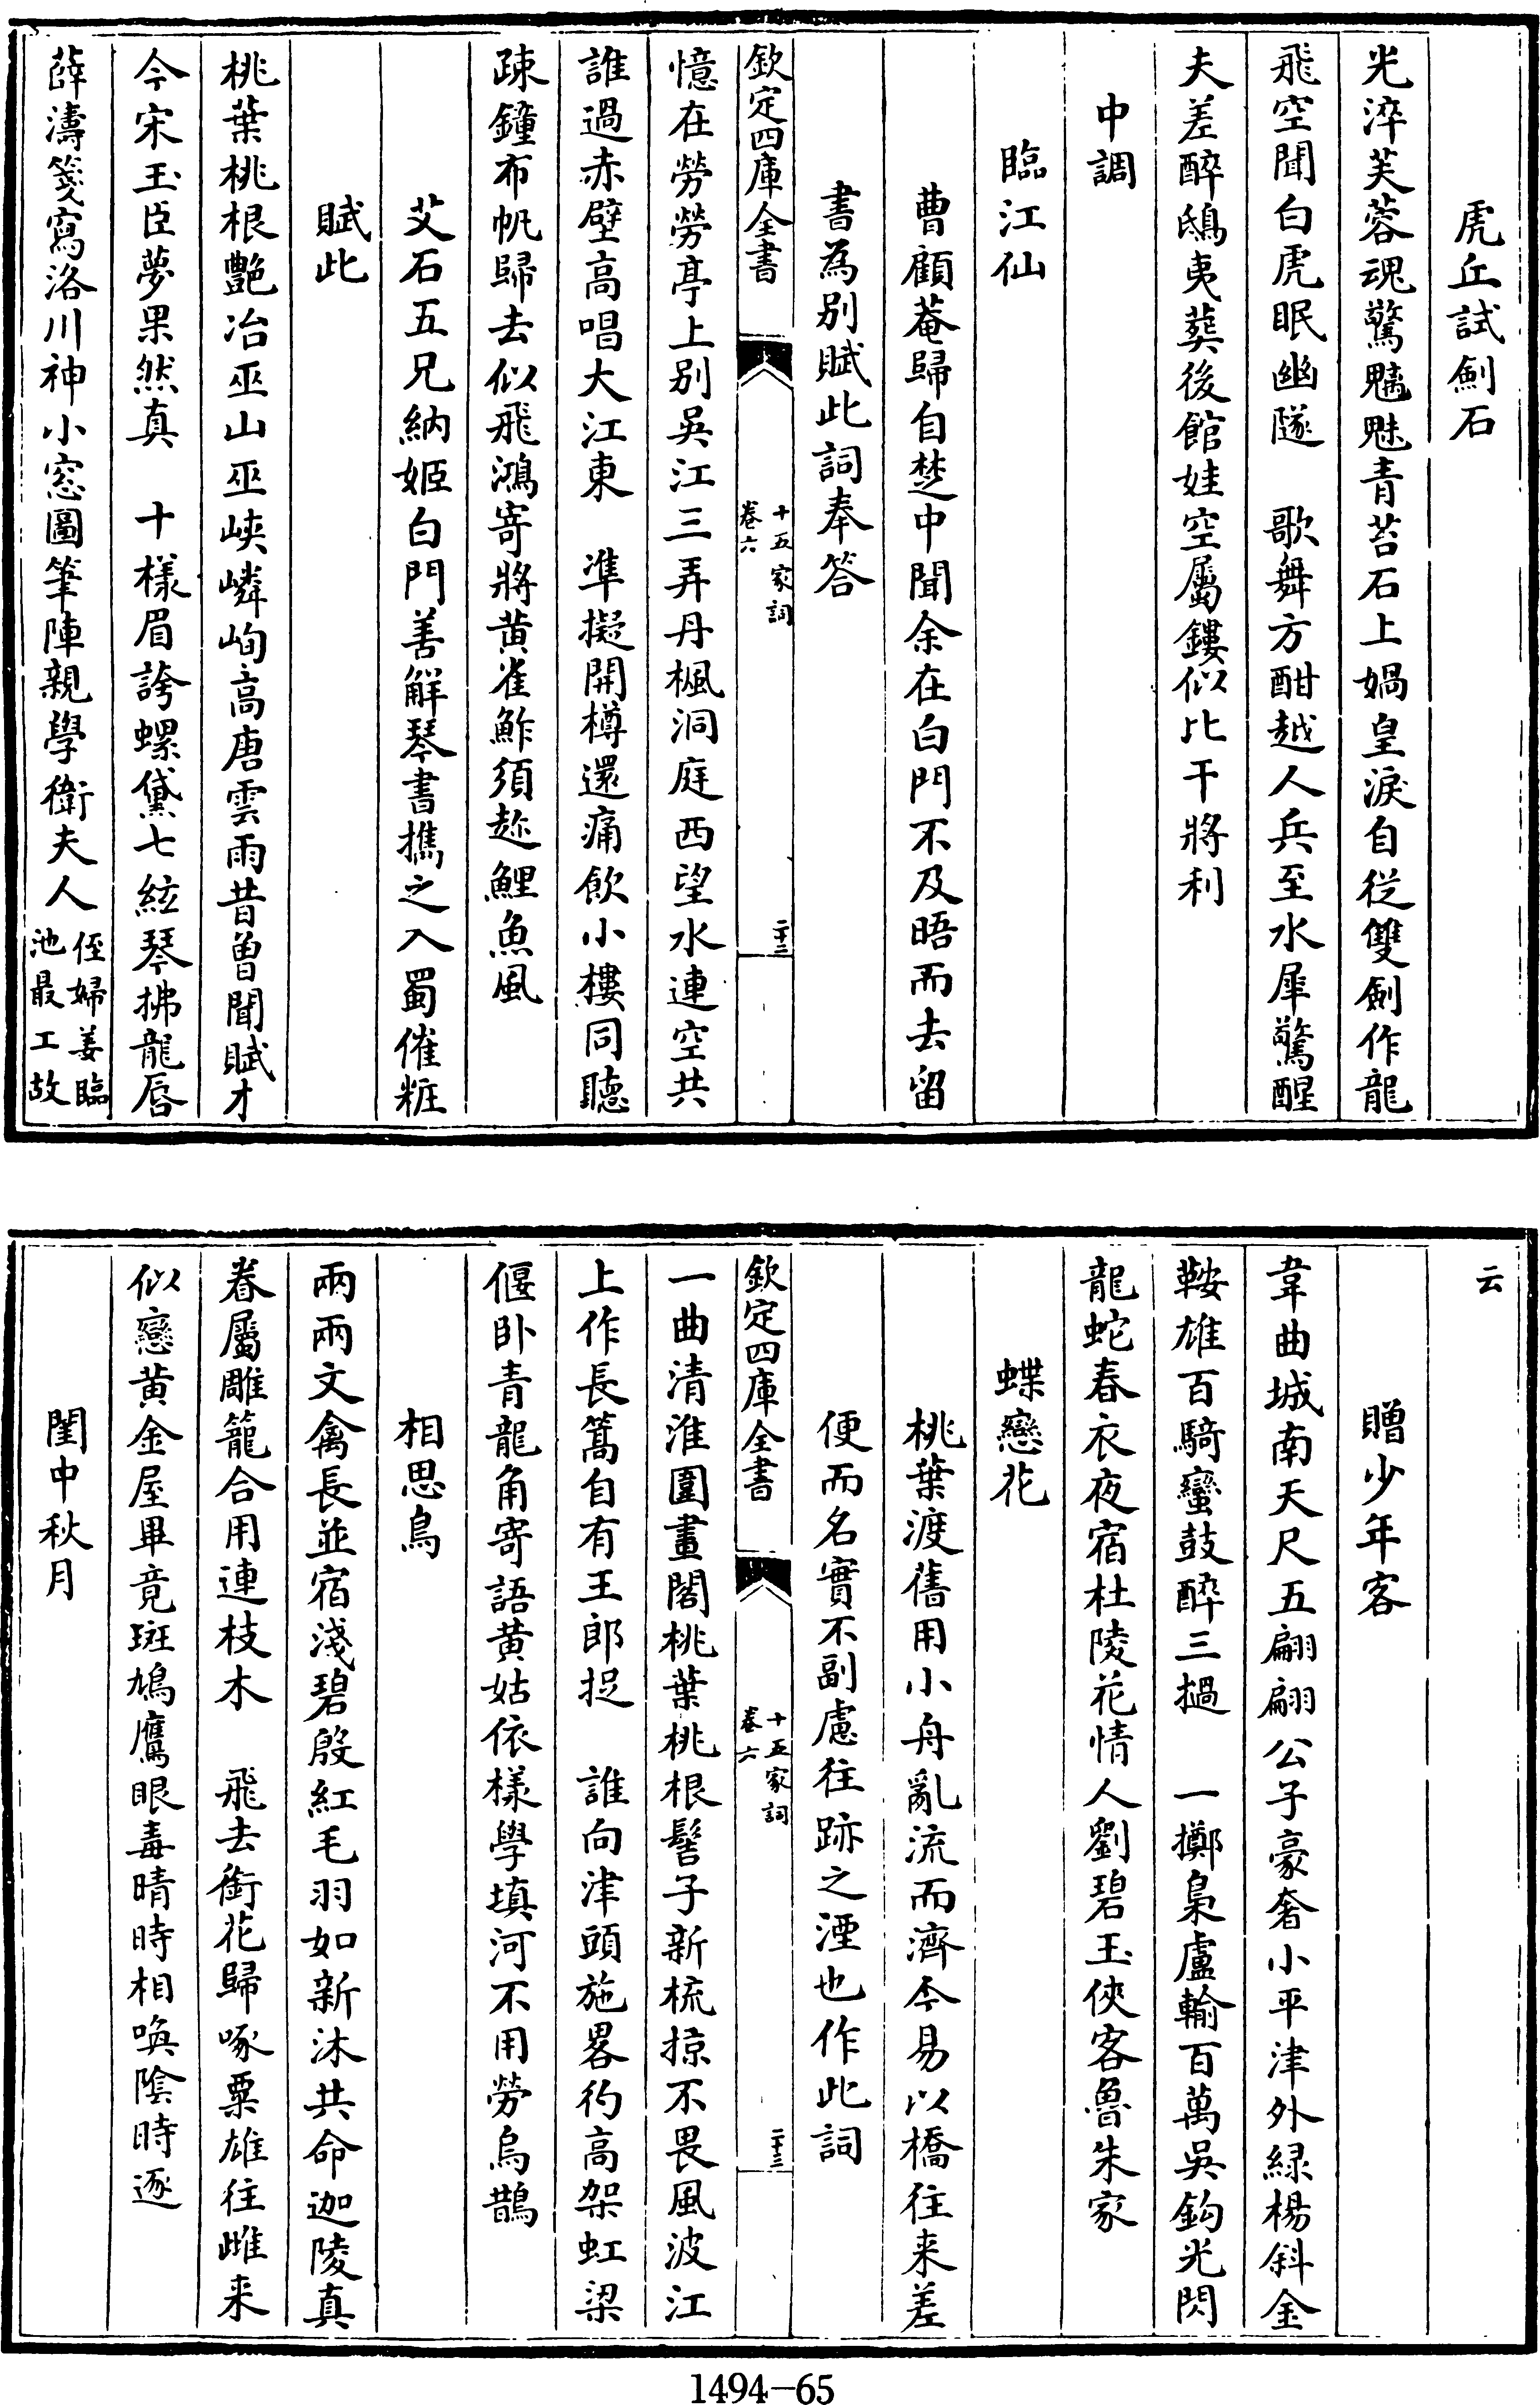 虎丘試劍石
光淬芙蓉魂驚魑魅青苔石上媧皇淚自從雙劍作龍
飛空聞白虎眠幽隧　歌舞方酣越人兵至水犀驚醒
夫差醉鴟夷葬後館娃空屬鏤似比干將利
中調
臨江仙
曹顧菴歸自楚中聞余在白門不及晤而去留
書為别賦此詞奉答
欽定四庫全書
十五家詞
卷六
二十三
憶在勞勞亭上别吳江三弄丹楓洞庭西望水連空共
誰過赤壁高唱大江東　準擬開樽還痛飲小樓同聽
疎鐘布帆歸去似飛鴻寄將黄雀鮓須趂鯉魚風
艾石五兄納姬白門善解琴書攜之入蜀催粧
賦此
桃葉桃根艷冶巫山巫峽嶙峋高唐雲雨昔曽聞賦才
今宋玉臣夢果然真　十樣眉誇螺黛七絃琴拂龍唇
薛濤箋寫洛川神小窓圖筆陣親學衛夫人
侄婦姜臨
池最工故
云
贈少年客
韋曲城南天尺五翩翩公子豪奢小平津外緑楊斜金
鞍雄百騎蠻鼓醉三撾　一擲梟盧輸百萬吳鈎光閃
龍蛇春衣夜宿杜陵花情人劉碧玉俠客魯朱家
蝶戀花
桃葉渡舊用小舟亂流而濟今易以橋往来差
便而名實不副慮往跡之湮也作此詞
欽定四庫全書
十五家詞
卷六
二十三
一曲清淮圍畫閣桃葉桃根髻子新梳掠不畏風波江
上作長篙自有王郎捉　誰向津頭施畧彴高架虹梁
偃卧青龍角寄語黄姑依樣學填河不用勞烏鵲
相思鳥
兩兩文禽長並宿淺碧殷紅毛羽如新沐共命迦陵真
眷屬雕籠合用連枝木　飛去銜花歸啄粟雄往雌来
似戀黄金屋畢竟斑鳩鷹眼毒晴時相喚陰時逐
閨中秋月
1494-65